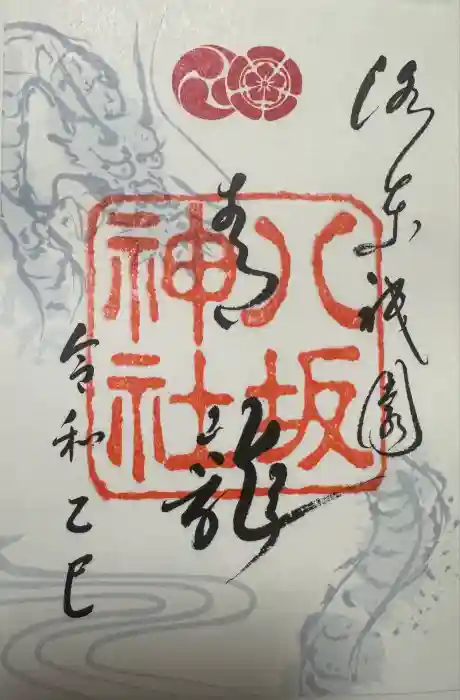 洛東祇園
青龍
令和乙巳
八坂
神社